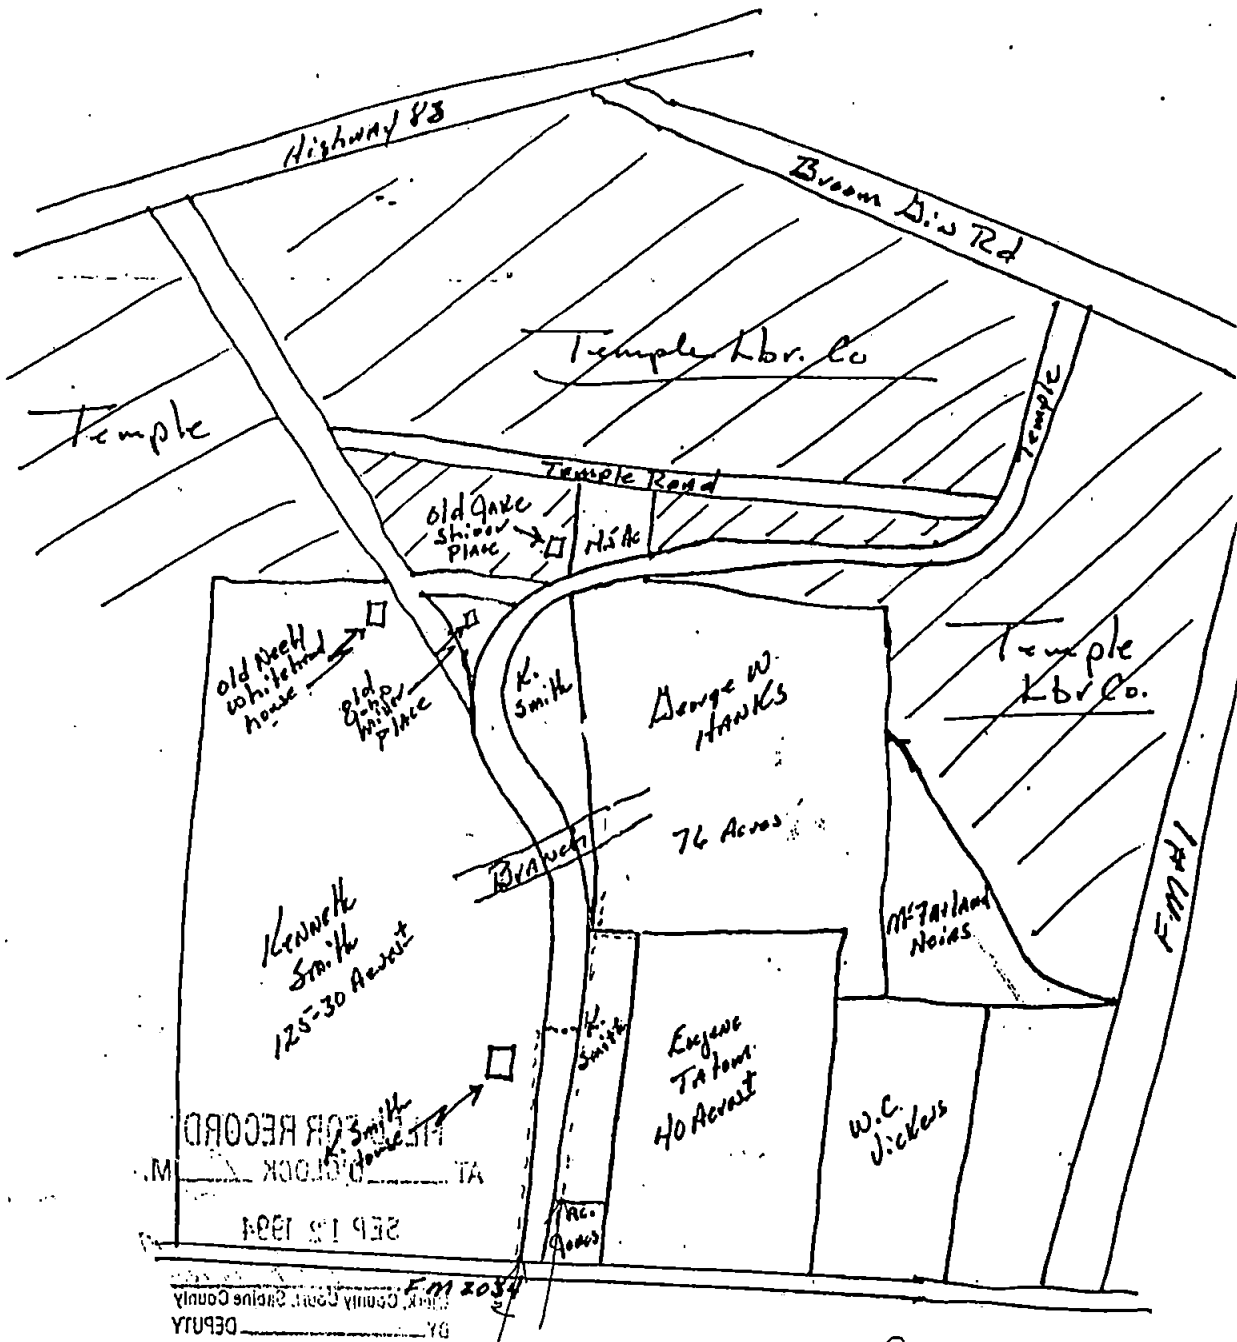 Highway 83
Broom Gin Rd
Temple Lbr. Co
Temple
Temple
Temple Road
old Jake
Shiner
Place
4.5 Ac
old
whitehead
house
old
place
K.
Smith
George W.
HANKS
76 Acres
Temple
Lbr Co.
Branch
Kenneth
Smith
125-30 Acres±
McFarland
Heirs
FM #1
K.
Smith
Eugene
Tatom
40 Acres±
W.C.
Vickers
K. Smith
House
FILED FOR RECORD
AT O'CLOCK M.
SEP 12 1994
Ac.
Jones
FM 2084
Clerk, County Court, Sabine County
BY DEPUTY